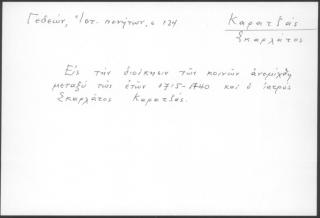 Γεδεών, Ἱστ. πενήτων, σ 134
Καρατζᾶς
Σκαρλάτος
Εἰς τὴν διοίκησιν τῶν κοινῶν ἀνεμίχθη
μεταξὺ τῶν ἐτῶν 1715-1740 καὶ ὁ ἰατρὸς
Σκαρλάτος Καρατζᾶς.